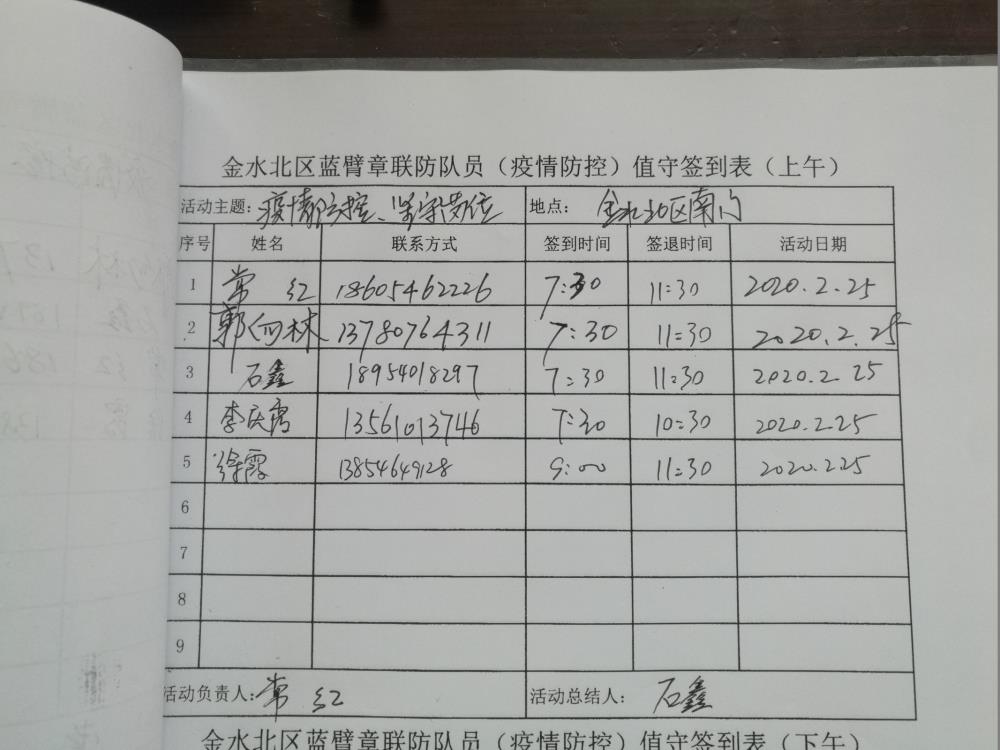 金水北区蓝臂章联防队员（疫情防控）值守签到表（上午）
活动主题：疫情防控、坚守岗位 地点：金水北区南门
序号 姓名 联系方式 签到时间 签退时间 活动日期
1 常红 18605462226 7:30 11:30 2020.2.25
2 郭向林 13780764311 7:30 11:30 2020.2.25
3 石鑫 18954018297 7:30 11:30 2020.2.25
4 李庆 13561013746 7:30 10:30 2020.2.25
5 徐霞 13854649128 9:00 11:30 2020.2.25
6
7
8
9
活动负责人：常红 活动总结人：石鑫
金水北区蓝臂章联防队员（疫情防控）值守签到表（下午）